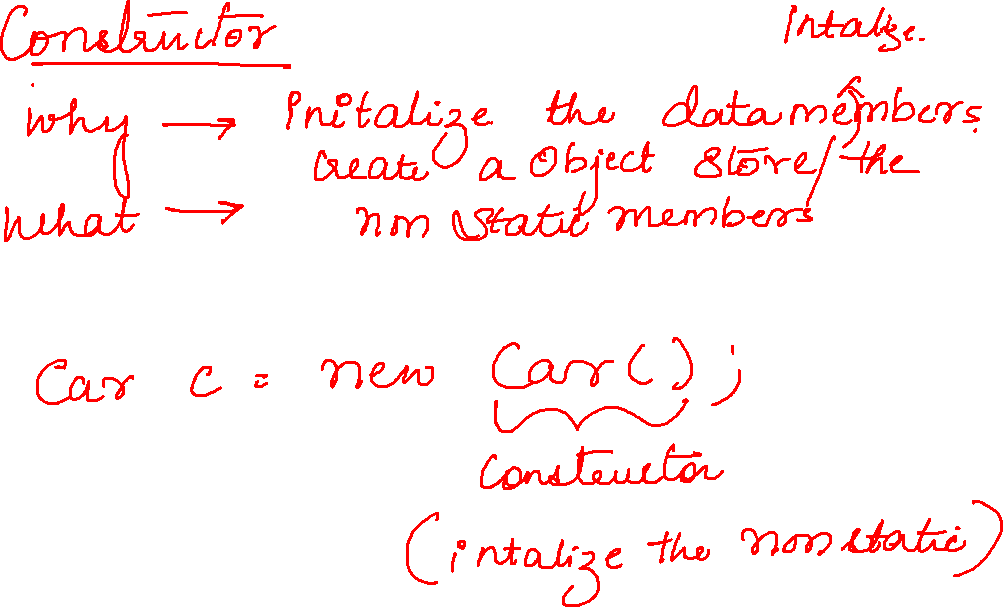 Constructor
Intalize.
why → Initalize the data members.
create a Object Store / the
what → non static members
Car c = new Car();
Constructor
(intalize the non static)